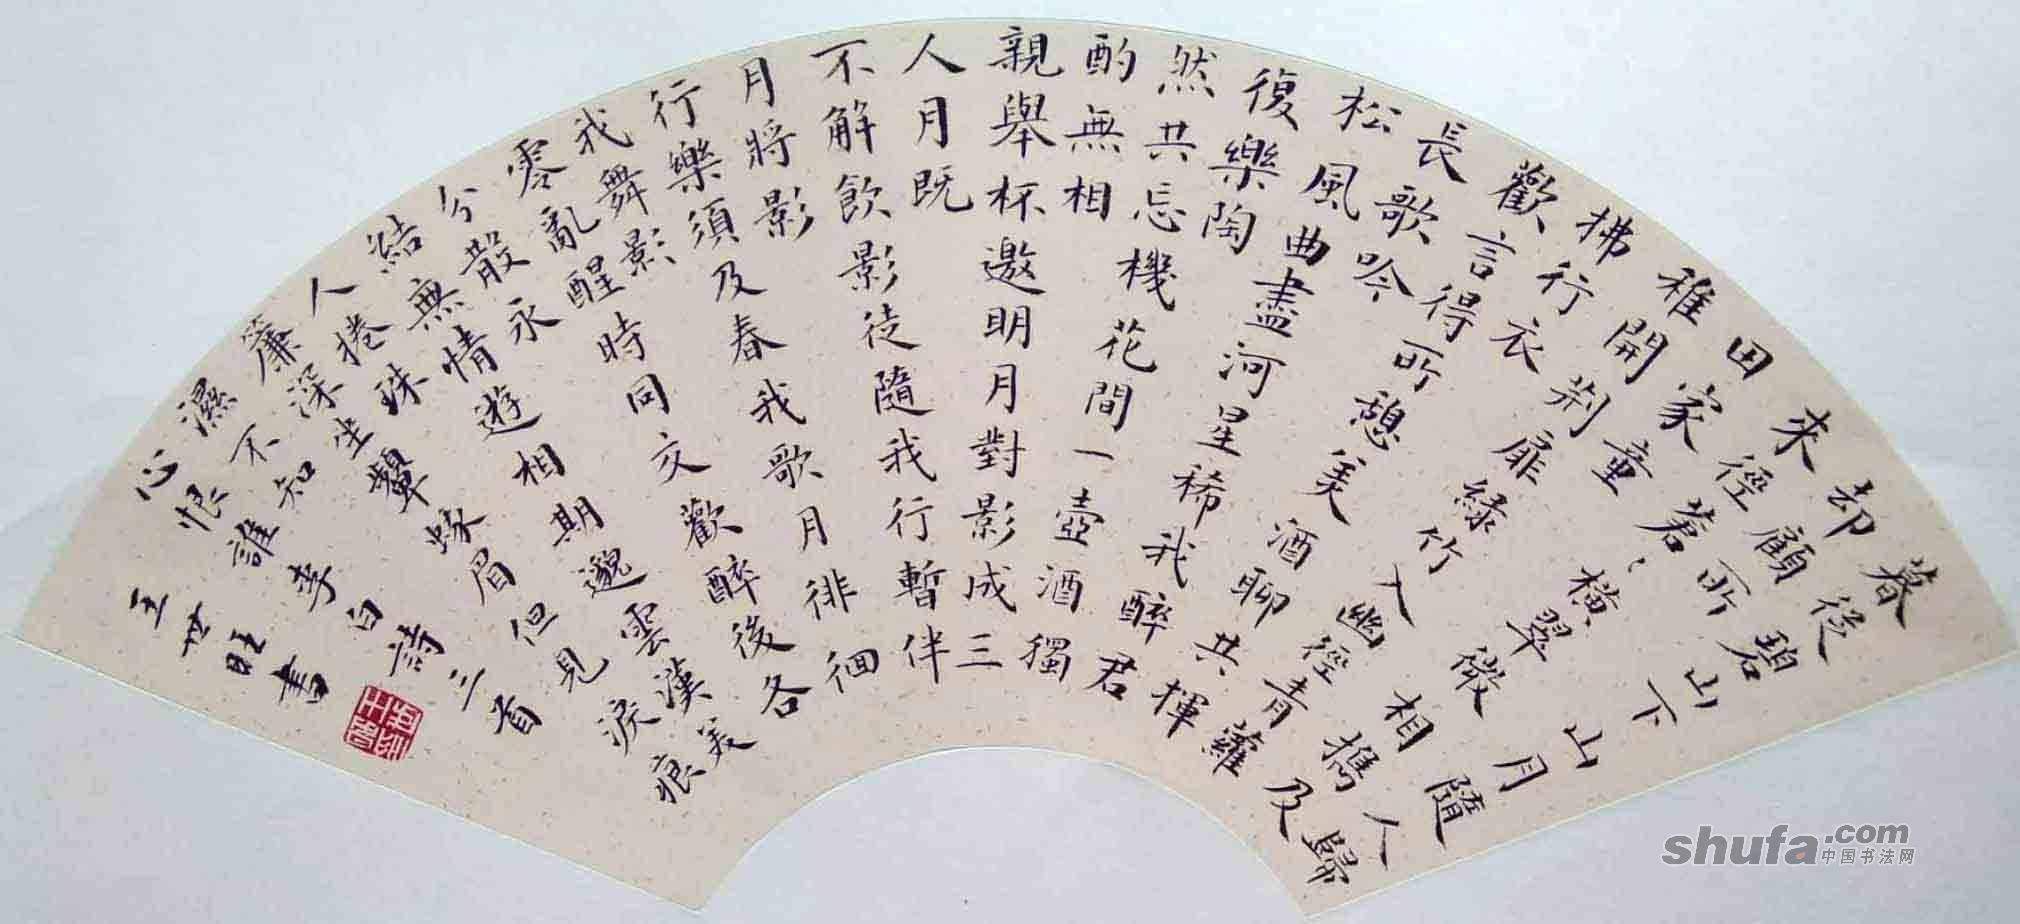 暮從碧山下山月隨人歸
却顧所
來徑蒼〻橫翠微相攜及
田家童
稚開荊扉綠竹入幽徑青蘿
拂行衣
歡言得所憩美酒聊共揮
長歌吟
松風曲盡河星稀我醉君
復樂陶
然共忘機花間一壺酒獨
酌無相
親舉杯邀明月對影成三
人月既
不解飲影徒隨我行暫伴
月將影
行樂須及春我歌月徘徊
我舞影
零亂醒時同交歡醉後各
分散永
結無情遊相期邈雲漢美
人捲珠
簾深坐顰蛾眉但見淚痕
濕不知
心恨誰李白詩三首
王世旺書
shufa.com
中国书法网